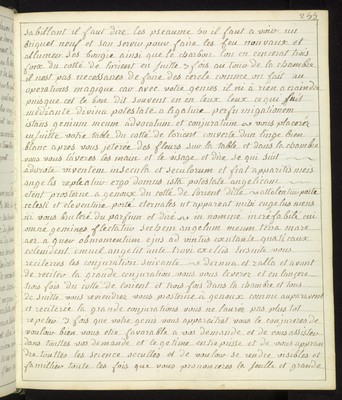 255
sabillant il faut dire les pseaume ou il faut avoir un
briquet neuf et san servir pour faire les feu nouvaux et
allumer ses bougie ainsi que le charbon lon en cencerat trois
fois du cotté de lorient en suitte 3 fois au tour de la chambre
il nest pas necessaires de faire des cercle comme on fait au
operations magique car avec votre genies il ni a rien a craindre
puisque cet le bon dit souvent en en deux ceux ce qui fait
mediante divina potestate a ligatur perfumigationem
istans genium meum adoratum et conjuratum vous placerez
en suitte votre table du cotté de lorient couverte dun linge bien
blanc apres vous jeterez des fleurs sur la table et dans la chambre
vous vous laveres les main et le visage et dire se qui suit
adorate viventem in secula et seculorum et fiat apparitio meis
angelis repleatur ergo domus ista potestate angelicam
etant prosterné a genoux du cotté de lorient ditte attolentur porte
celesti et eleventure porte eternales ut appareat mihi angelus meus
ici vous bruleré du parfum et diré in nomine ineffabile cui
omne genimes flectatur sechem angelum meum terra mare
aer a quev obmomentum ejus ad vinties exultate quoti eaux
ostendent emuit angelit unde troni exelles
reciteres les conjuration suivante derana et ralla et avant
de reciter la grande conjuration vous vous leverez et en lenceré
trois fois du cotté de lorient et trois fois dans la chambre et tout
de suitte vous revendrez vous prosterné a genoux comme auparavent
et reciterée la grande conjurations vous ne laurée pas plus tot
repeter 3 fois que votre genis vous apparoitrat vous le conjurerés de
vouloir bien vous etre favorable a vos demande et de vous assister
dans touttes vos demande et legitime entreprisse et de vous appran
dre touttes les science occultes et de vouloir se rendre visibles et
familier toute les fois que vous prononceres la petitte et grande